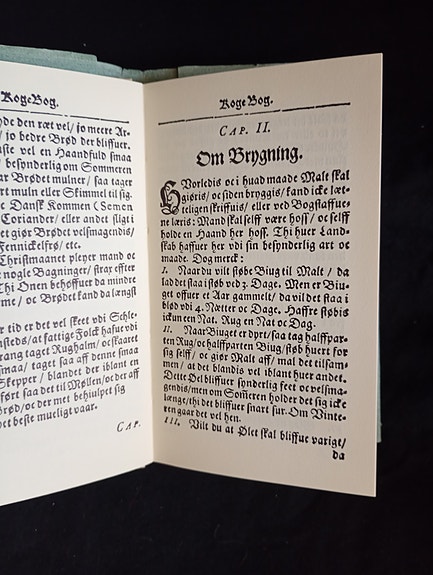 KogeBog.
de den ræt vel/ jo meere Ar-
/ jo bedre Brød der bliffuer.
ste vel en Haandfuld smaa
/ besønderlig om Sommeren
ar Brødet mulner/ saa tager
art muln eller Skimmel til sig.
e Dansk Kommen (Semen
Coriander/ eller andet sligt i
et giør Brødet velsmagendis/
Fennickelfrø/ etc.
Christmaanet pleyer mand oc
nogle Bagninger/ strax effter
Thi Onen behøffuer da mindre
me/ oc Brødet kand da længst
r tid er det vel skeet vdi Schle-
ndsteds/ at fattige Folck hafue vdi
rang taget Rughalm/ oc skaaret
smaa/ taget saa aff denne smaa
Skepper/ blandet der iblant en
ført saa det til Møllen/ oc der aff
Brød/ oc der met behiulpet sig
et beste mueligt vaar.
CAP.
Koge Bog.
CAP. II.
Om Brygning.
HVorledis oc i huad maade Malt skal
giøris/ oc siden bryggis/ kand icke læt-
teligen skriffuis/ eller ved Bogstaffue-
ne læris: Mand skal self være hoss/ oc self
holde en Haand her hoss. Thi huer Land-
skab haffuer her vdi sin besynderlig art oc
maade. Dog merck:
I. Naar du vilt støbe Biug til Malt/ da
lad det staa i støb ved 3. Dage. Men er Biu-
get offuer et Aar gammelt/ da vil det staa i
blød vdi 4. Nætter oc Dage. Haffre støbis
ickun een Nat. Rug en Nat oc Dag.
II. Naar Biuget er dyrt/ saa tag halffpar-
ten Rug/ oc halffparten Biug/ støb huert for
sig self/ oc giør Malt aff/ mal det tilsam-
men/ at det blandis vel iblant huer andet.
Dette Øel bliffuer synderlig feet oc velsma-
gendis/ men om Som̃eren holder det sig icke
længe/ thi det bliffuer snart sur. Om Vinte-
ren gaar det vel hen.
III. Vilt du at Ølet skal bliffue varigt/
da